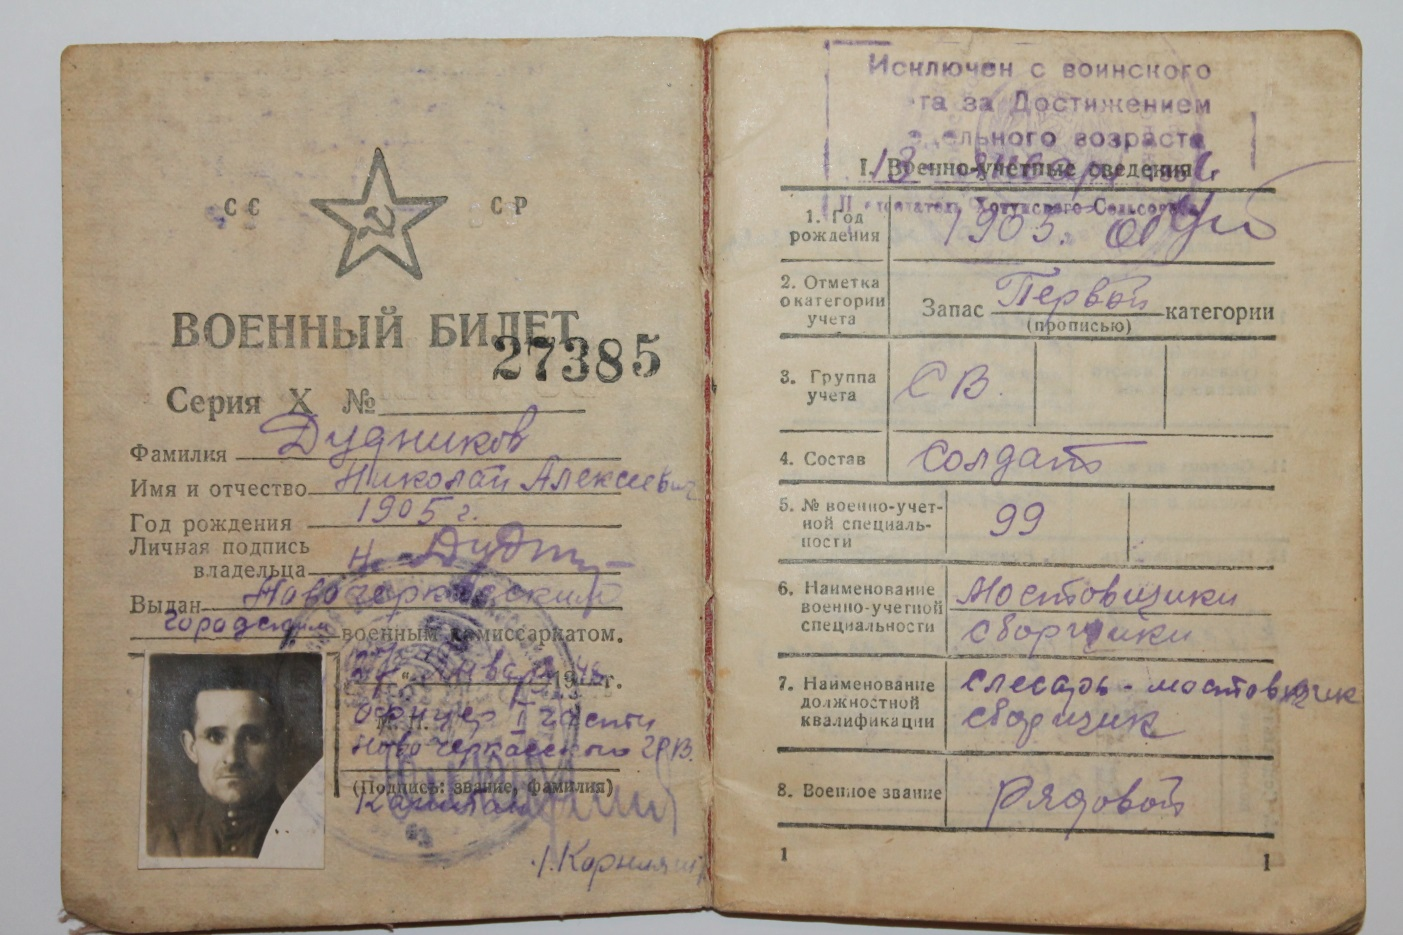 СС СР
ВОЕННЫЙ БИЛЕТ
27385
Серия X №
Фамилия Дудников
Имя и отчество Николай Алексеевич
Год рождения 1905 г.
Личная подпись
владельца Н.
Выдан Новочеркасским
городским военным комиссариатом.
Января 19 г.
офицер I части
Новочеркасского ГРВ.
(Подпись: звание, фамилия)
Капитан
Исключен с воинского
та за Достижением
дельного возраста
I. Военно-учетные сведения
Хотунского Сельсовета
1. Год
рождения 1905 г.
2. Отметка
о категории
учета
Запас Первой категории
(прописью)
3. Группа
учета СВ.
4. Состав солдат
5. № военно-учет-
ной специаль-
ности 99
6. Наименование
военно-учетной
специальности
Мостовщики
сборщики
7. Наименование
должностной
квалификации
Слесарь-мостовщик
сборщик
8. Военное звание рядовой
1
1